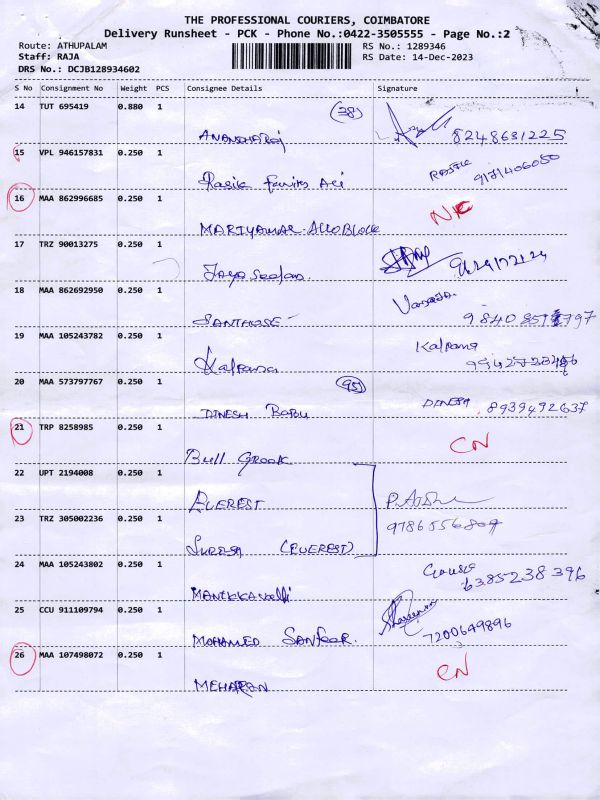 THE PROFESSIONAL COURIERS, COIMBATORE
Delivery Runsheet - PCK - Phone No.:0422-3505555 - Page No.:2
Route: ATHUPALAM RS No.: 1289346
Staff: RAJA RS Date: 14-Dec-2023
DRS No.: DCJB128934602
S No Consignment No Weight PCS Consignee Details Signature
14 TUT 695419 0.880 1 (38)
8248631225
15 VPL 946157831 0.250 1
16 MAA 862996685 0.250 1 NC
MARIYAMAR
17 TRZ 90013275 0.250 1
18 MAA 862692950 0.250 1
SANTHOSE
19 MAA 105243782 0.250 1 Kalpana
Kalpana
20 MAA 573797767 0.250 1 (95)
DINESH BABU DINESH 8939492637
21 TRP 8258985 0.250 1 CN
Bull
22 UPT 2194008 0.250 1
EVEREST
23 TRZ 305002236 0.250 1
SURESH (EVEREST)
24 MAA 105243802 0.250 1
6385238396
25 CCU 911109794 0.250 1
MOHAMED 7200649896
26 MAA 107498072 0.250 1 CN